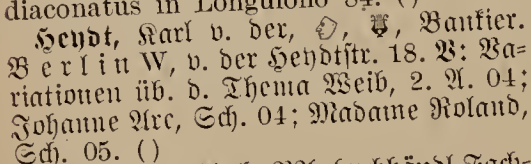 diaconatus in Longuiono 84. ()
Heydt, Karl v. der, Bankier.
Berlin W, v. der Heydtstr. 18. V: Va=
riationen üb. d. Thema Weib, 2. A. 04;
Johanne Arc, Sch. 04; Madame Roland,
Sch. 05. ()